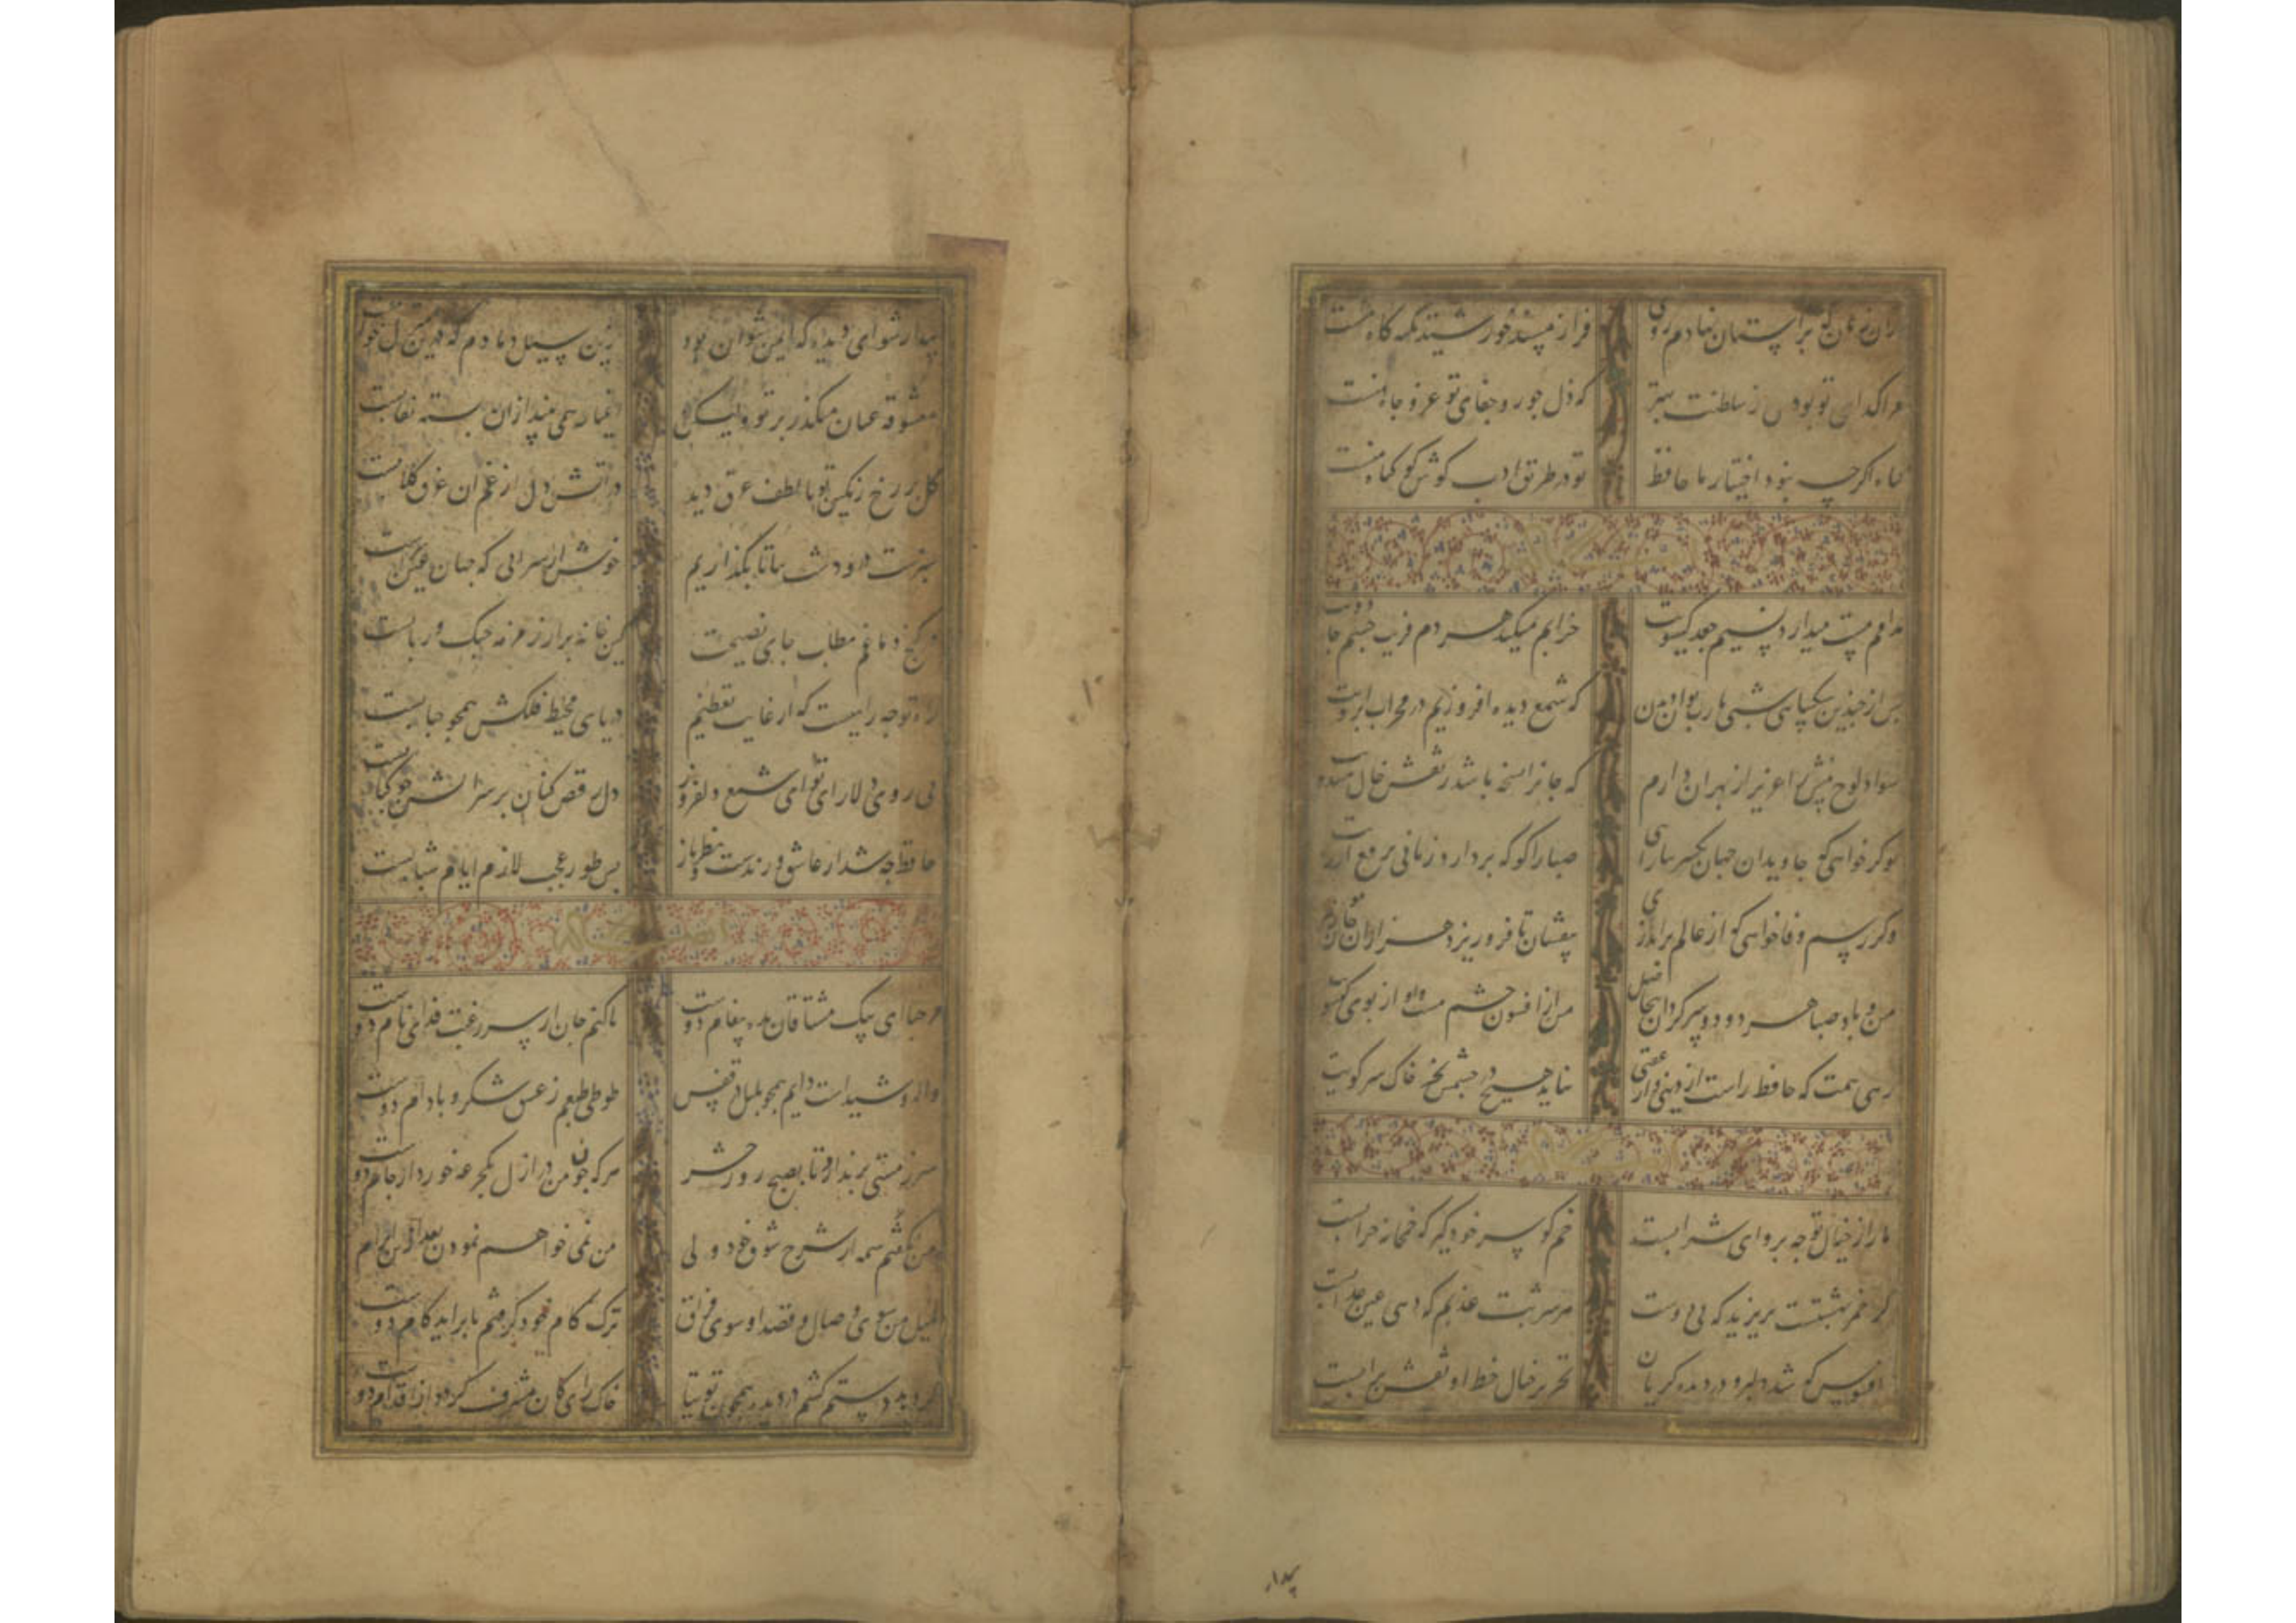 ازان زمان که بر آستان نهادم روی فراز مسند خورشید تکیه گاه منست
مرا کدای تو بودن ز سلطنت بهتر که ذل جور و جفای تو عز و جاه منست
کناه اکرچه نبود اختیار ما حافظ تو در طریق ادب کوش کو کناه منست
مدامم مست میدارد نسیم جعد کیسویت خرابم میکند هر دم فریب چشم جادویت
پس از چندین شکیبایی شبی یارب توان دیدن که شمع دیده افروزیم در محراب ابرویت
سواد لوح بینش را عزیز از بهر ان دارم که جانرا نسخه باشد ز نقش خال هندویت
تو کر خواهی که جاویدان جهان یکسر بیارایی صبا را کو که بردارد زمانی برقع از رویت
وکر رسم وفا خواهی که از عالم براندازی بیفشان تا فرو ریزد هزاران جان ز هر مویت
من و باد صبا هر دو دو سرکردان بیحاصل من از افسون چشم مست و او از بوی کیسویت
زهی همت که حافظ راست از دنیی و از عقبی نیاید هیچ در چشمش بجز خاک سر کویت
ما را ز خیال تو چه پروای شرابست خم کو سر خود کیر که خمخانه خرابست
کر خمر بهشتست بریزید که بی دوست هر شربت عذبم که دهی عین عذابست
افسوس که شد دلبر و در دیده کریان تحریر خیال خط او نقش بر ابست
بیدار
بیدار شو ای دیده که ایمن نتوان بود زین سیل دمادم که درین منزل خوابست
معشوقه عیان میکذرد بر تو ولیکن اغیار همی بیند ازان بسته نقابست
کل بر رخ رنکین تو تا لطف عرق دید در اتش دل از غم ان غرق کلابست
سبزست در و دشت بیا تا نکذاریم
در کنج دماغم مطلب جای نصیحت کین خانه پر از زمزمه چنک و ربابست
راه تو چه راهیست که از غایت تعظیم دریای محیط فلکش همچو حبابست
بی روی دلارای تو ای شمع دلفروز دل رقص کنان بر سر اتش چو کبابست
حافظ چه شد ار عاشق و رندست و نظرباز بس طور عجب لازم ایام شبابست
مرحبا ای پیک مشتاقان بده پیغام دوست تا کنم جان از سر رغبت فدای نام دوست
واله و شیداست دایم همچو بلبل در قفس طوطی طبعم ز عشق شکر و بادام دوست
سر ز مستی برندارد تا بصبح روز حشر هرکه چون من در ازل یکجرعه خورد از جام دوست
من نکفتم شمه از شرح شوق خود ولی من نمی خواهم نمودن بعد ازین ابرام
میل من سوی وصال و قصد او سوی فراق ترک کام خود کرفتم تا براید کام دوست
کر دهد دستم کشم در دیده همچون توتیا خاک راهی کان مشرف کردد از اقدام دوست